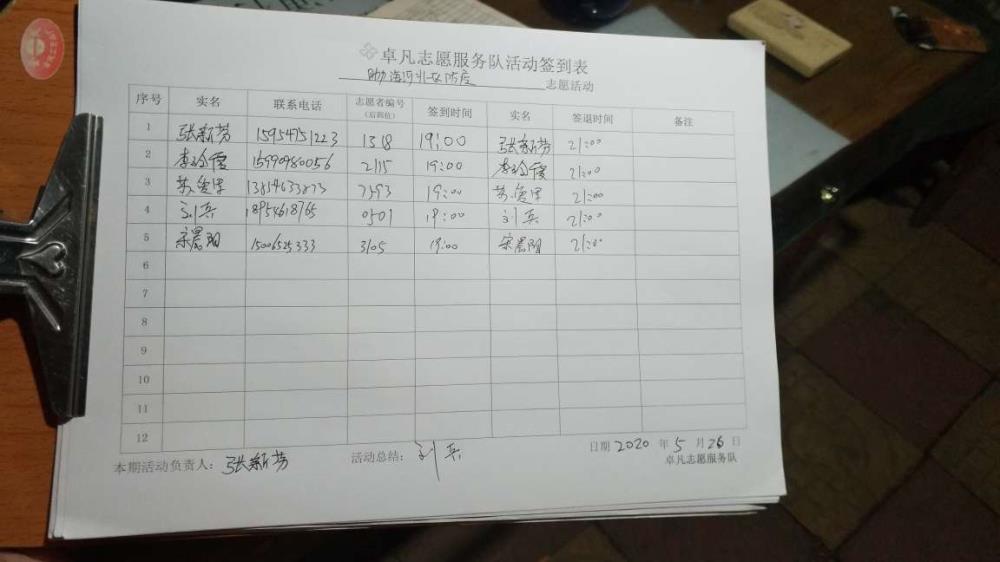 卓凡志愿服务队活动签到表
志愿活动
序号 实名 联系电话 志愿者编号(后四位) 签到时间 实名 签退时间 备注
1 张新芳 15954751223 1318 19:00 张新芳 21:00
2 李玲霞 15990980056 2115 19:00 李玲霞 21:00
3 19:00 21:00
4 刘兵 18954618765 0501 19:00 刘兵 21:00
5 宋晨阳 15006525333 3105 19:00 宋晨阳 21:00
6
7
8
9
10
11
12
本期活动负责人: 张新芳 活动总结: 刘兵 日期 2020 年 5 月 26 日
卓凡志愿服务队